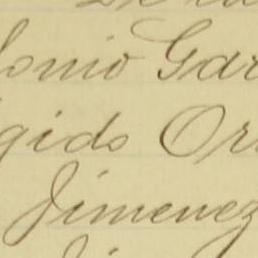 onio Gar
gido Or
Jimenez